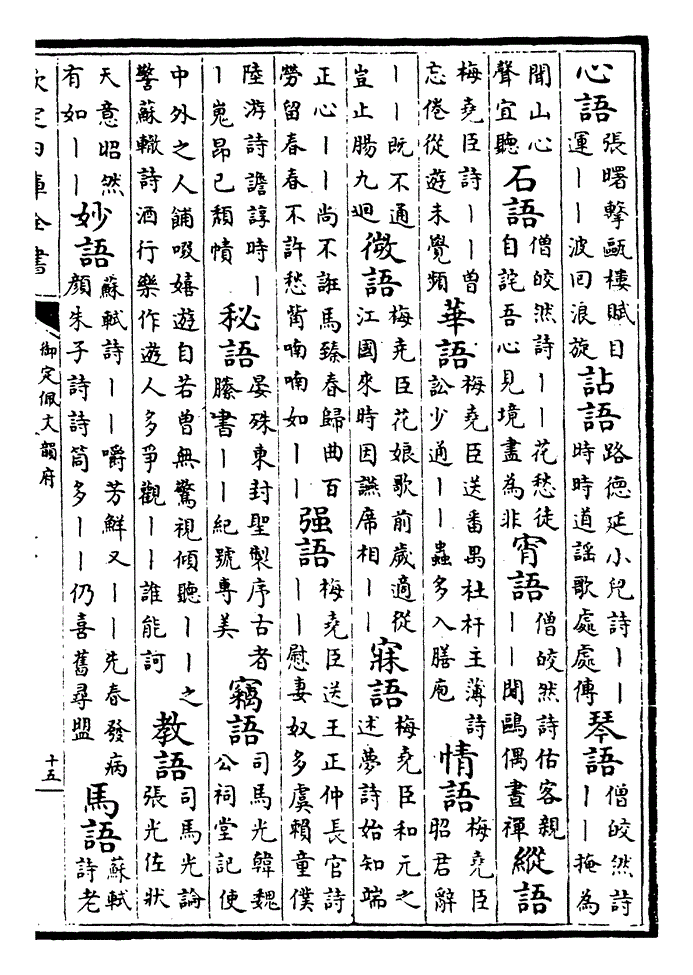 心語張曙擊甌樓賦目運丨丨波回浪旋詀語路德延小兒詩丨丨時時道謡歌處處傳琴語僧皎然詩丨丨掩為
聞山心聲宜聽石語僧皎然詩丨丨花愁徒自詫吾心見境盡為非宵語僧皎然詩估客親丨丨聞鷗偶晝禪縱語
梅堯臣詩丨丨曽忘倦從遊未覺頻華語梅堯臣送番禺杜杆主薄詩訟少通丨丨蟲多入膳庖情語梅堯臣昭君辭
丨丨既不通豈止腸九迴微語梅堯臣花娘歌前歲適從江國來時因讌席相丨丨寐語梅堯臣和元之述夢詩始知端
正心丨丨尚不誑馬臻春歸曲百勞留春春不許愁喃喃如丨丨强語梅堯臣送王正仲長官詩丨丨慰妻奴多虞賴童僕
陸游詩譫諄時丨丨嵬昂已頽幘秘語晏殊東封聖製序古者縢書丨丨紀號專美竊語司馬光韓魏公祠堂記使
中外之人餔啜嬉遊自若曽無驚視傾聽丨丨之警蘇轍詩酒行樂作遊人多爭觀丨丨誰能訶教語司馬光論張光佐狀
天意昭然有如丨丨妙語蘇軾詩丨丨嚼芳鮮又丨丨先春發病顔朱子詩詩筒多丨丨仍喜舊尋盟馬語蘇軾詩老
欽定四庫全書
御定佩文韻府
十五